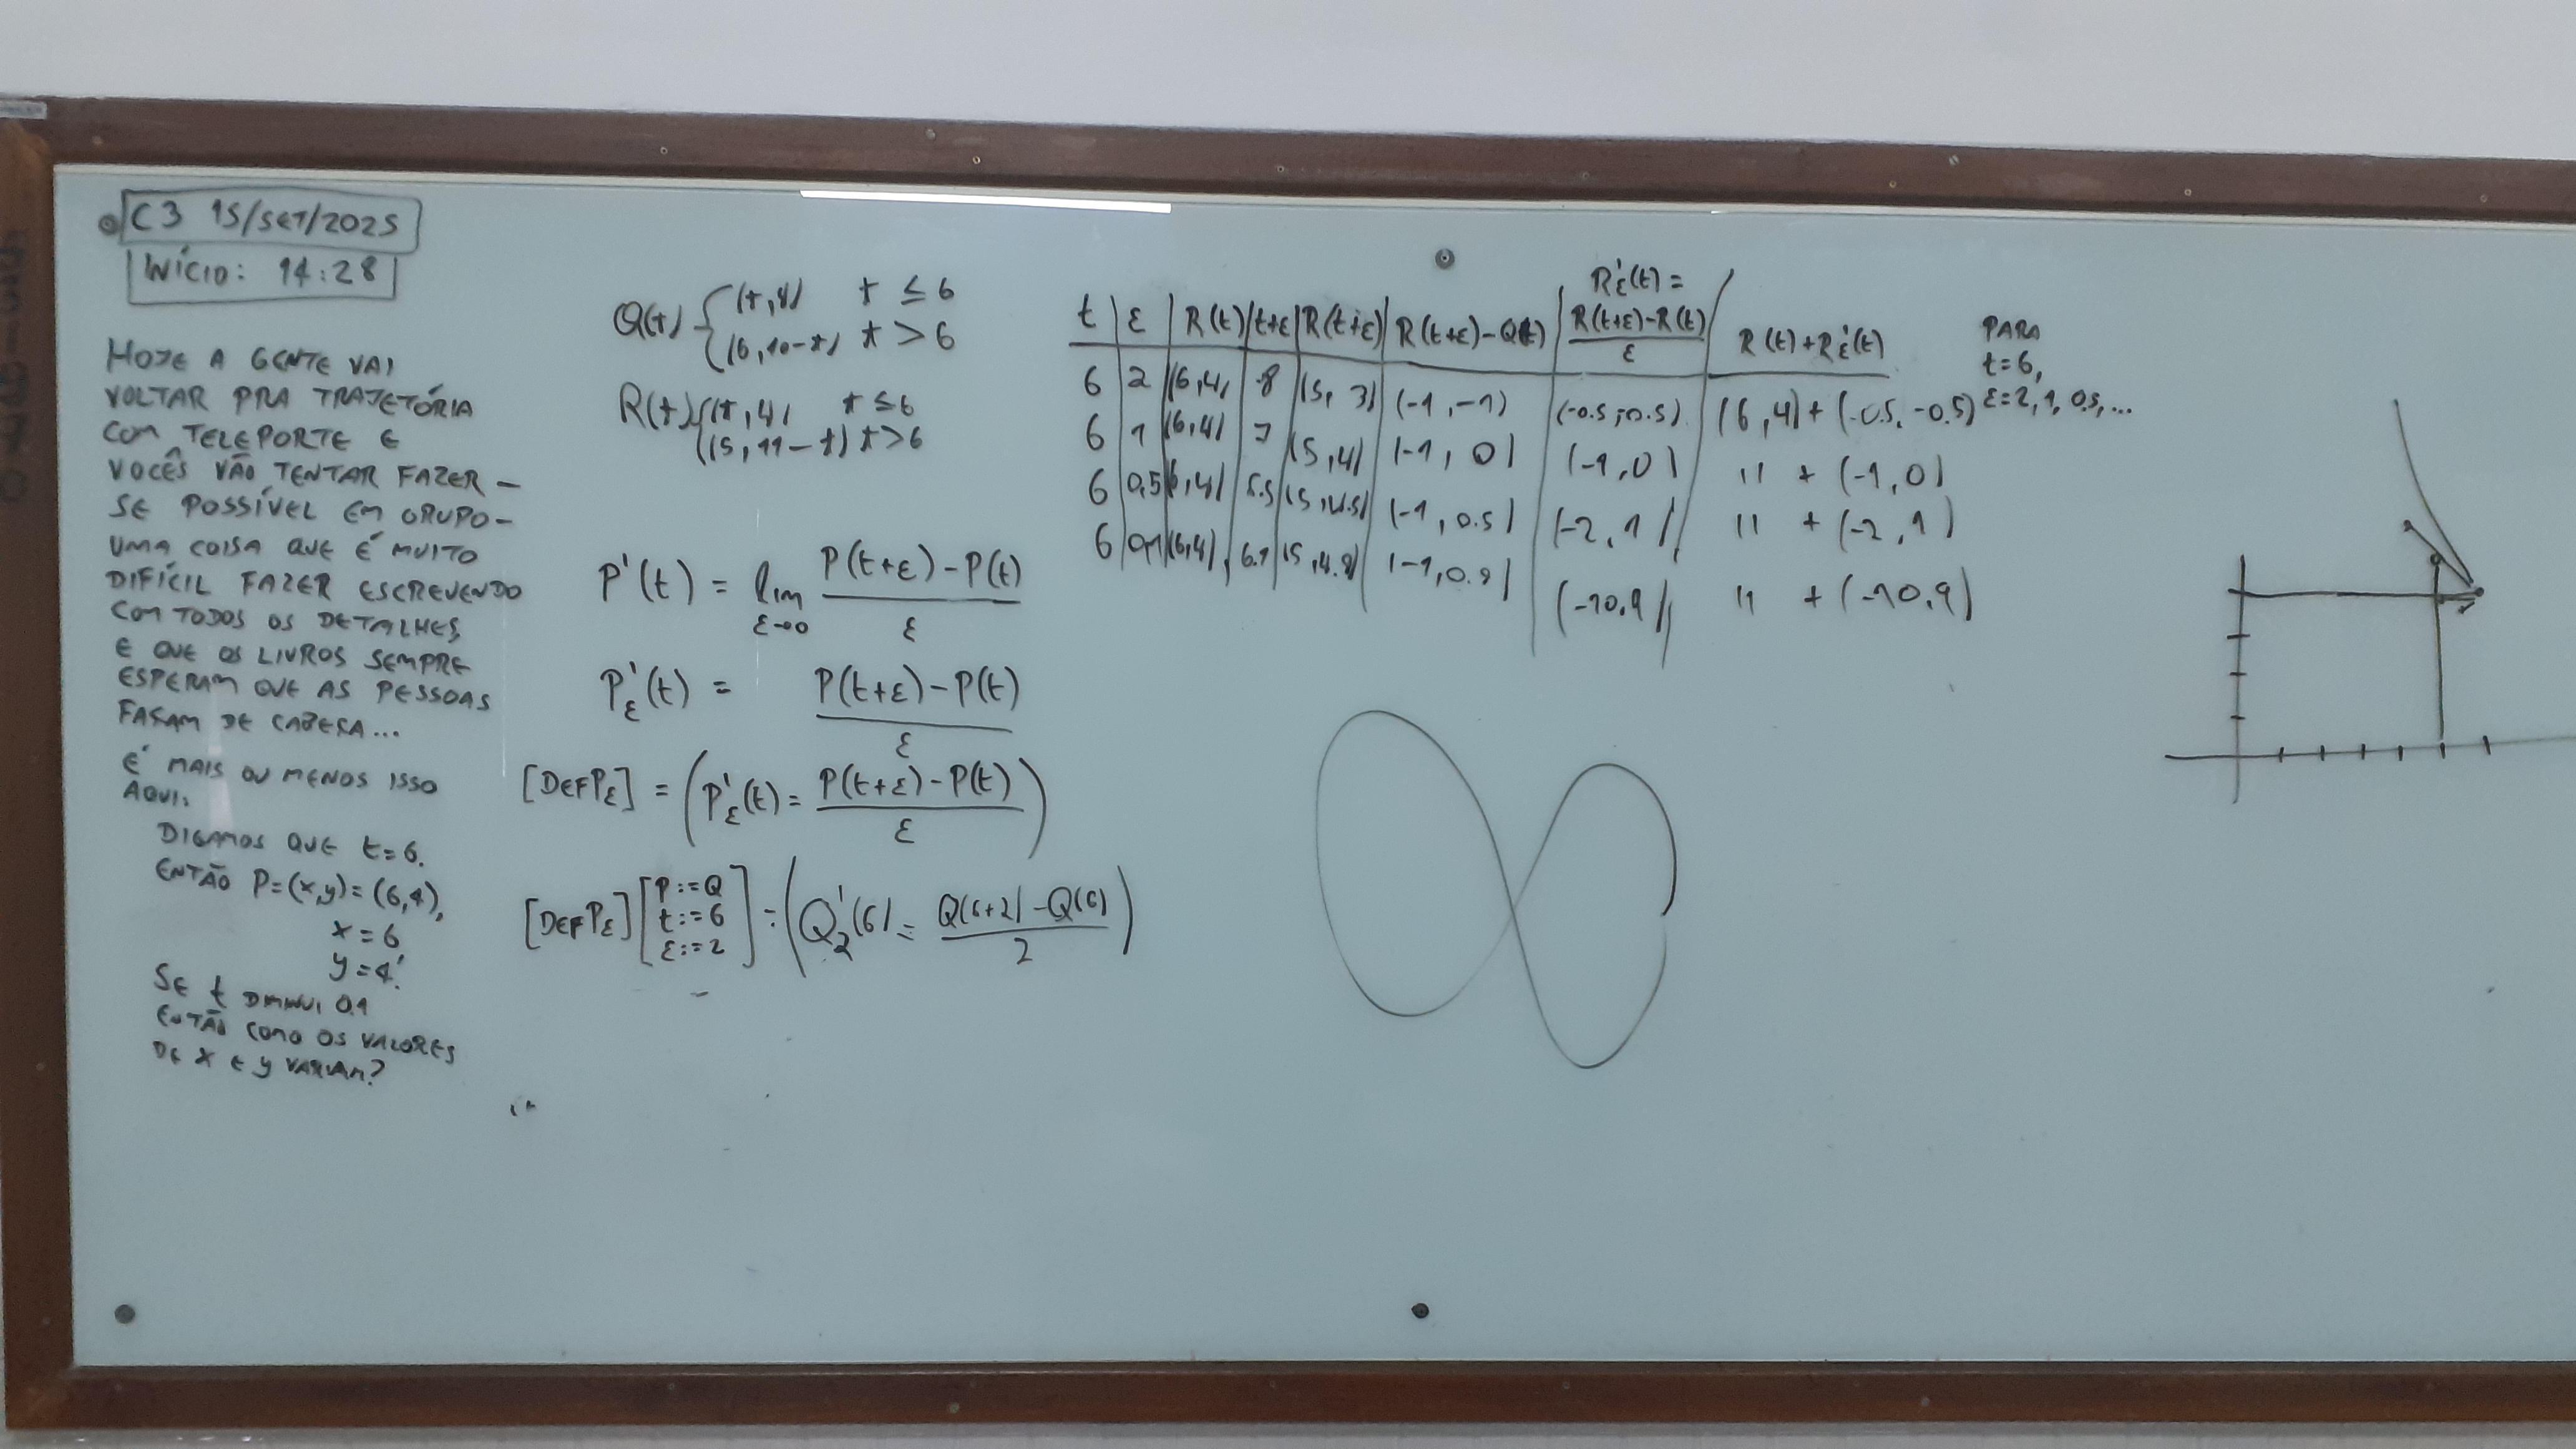 C3 15/SET/2025
INÍCIO: 14:28
HOJE A GENTE VAI
VOLTAR PRA TRAJETÓRIA
COM TELEPORTE E
VOCÊS VÃO TENTAR FAZER –
SE POSSÍVEL EM GRUPO –
UMA COISA QUE É MUITO
DIFÍCIL FAZER ESCREVENDO
COM TODOS OS DETALHES,
E QUE OS LIVROS SEMPRE
ESPERAM QUE AS PESSOAS
FAÇAM DE CABEÇA...
É MAIS OU MENOS ISSO
AQUI:
DIGAMOS QUE t=6.
ENTÃO P=(x,y)=(6,4),
x=6
y=4.
SE t DIMINUI 0.1
ENTÃO COMO OS VALORES
DE x E y VARIAM?
Q(t) { (t,4) t ≤ 6
(6,10-t) t > 6
R(t) { (t,4) t ≤ 6
(5,11-t) t > 6
P'(t) = lim ε→0 (P(t+ε)-P(t))/ε
P'ε(t) = (P(t+ε)-P(t))/ε
[DEFPε] = (P'ε(t) = (P(t+ε)-P(t))/ε)
[DEFPε] [P:=Q t:=6 ε:=2] = (Q'2(6) = (Q(6+2)-Q(6))/2)
t | ε | R(t) | t+ε | R(t+ε) | R(t+ε)-Q(t) | R'ε(t) = (R(t+ε)-R(t))/ε | R(t)+R'ε(t)
6 | 2 | (6,4) | 8 | (5,3) | (-1,-1) | (-0.5,-0.5) | (6,4)+(-0.5,-0.5)
6 | 1 | (6,4) | 7 | (5,4) | (-1,0) | (-1,0) | " + (-1,0)
6 | 0,5 | (6,4) | 6.5 | (5,4.5) | (-1,0.5) | (-2,1) | " + (-2,1)
6 | 0,1 | (6,4) | 6.1 | (5,4.9) | (-1,0.9) | (-10,9) | " + (-10,9)
PARA
t=6,
ε=2,1,0.5,...